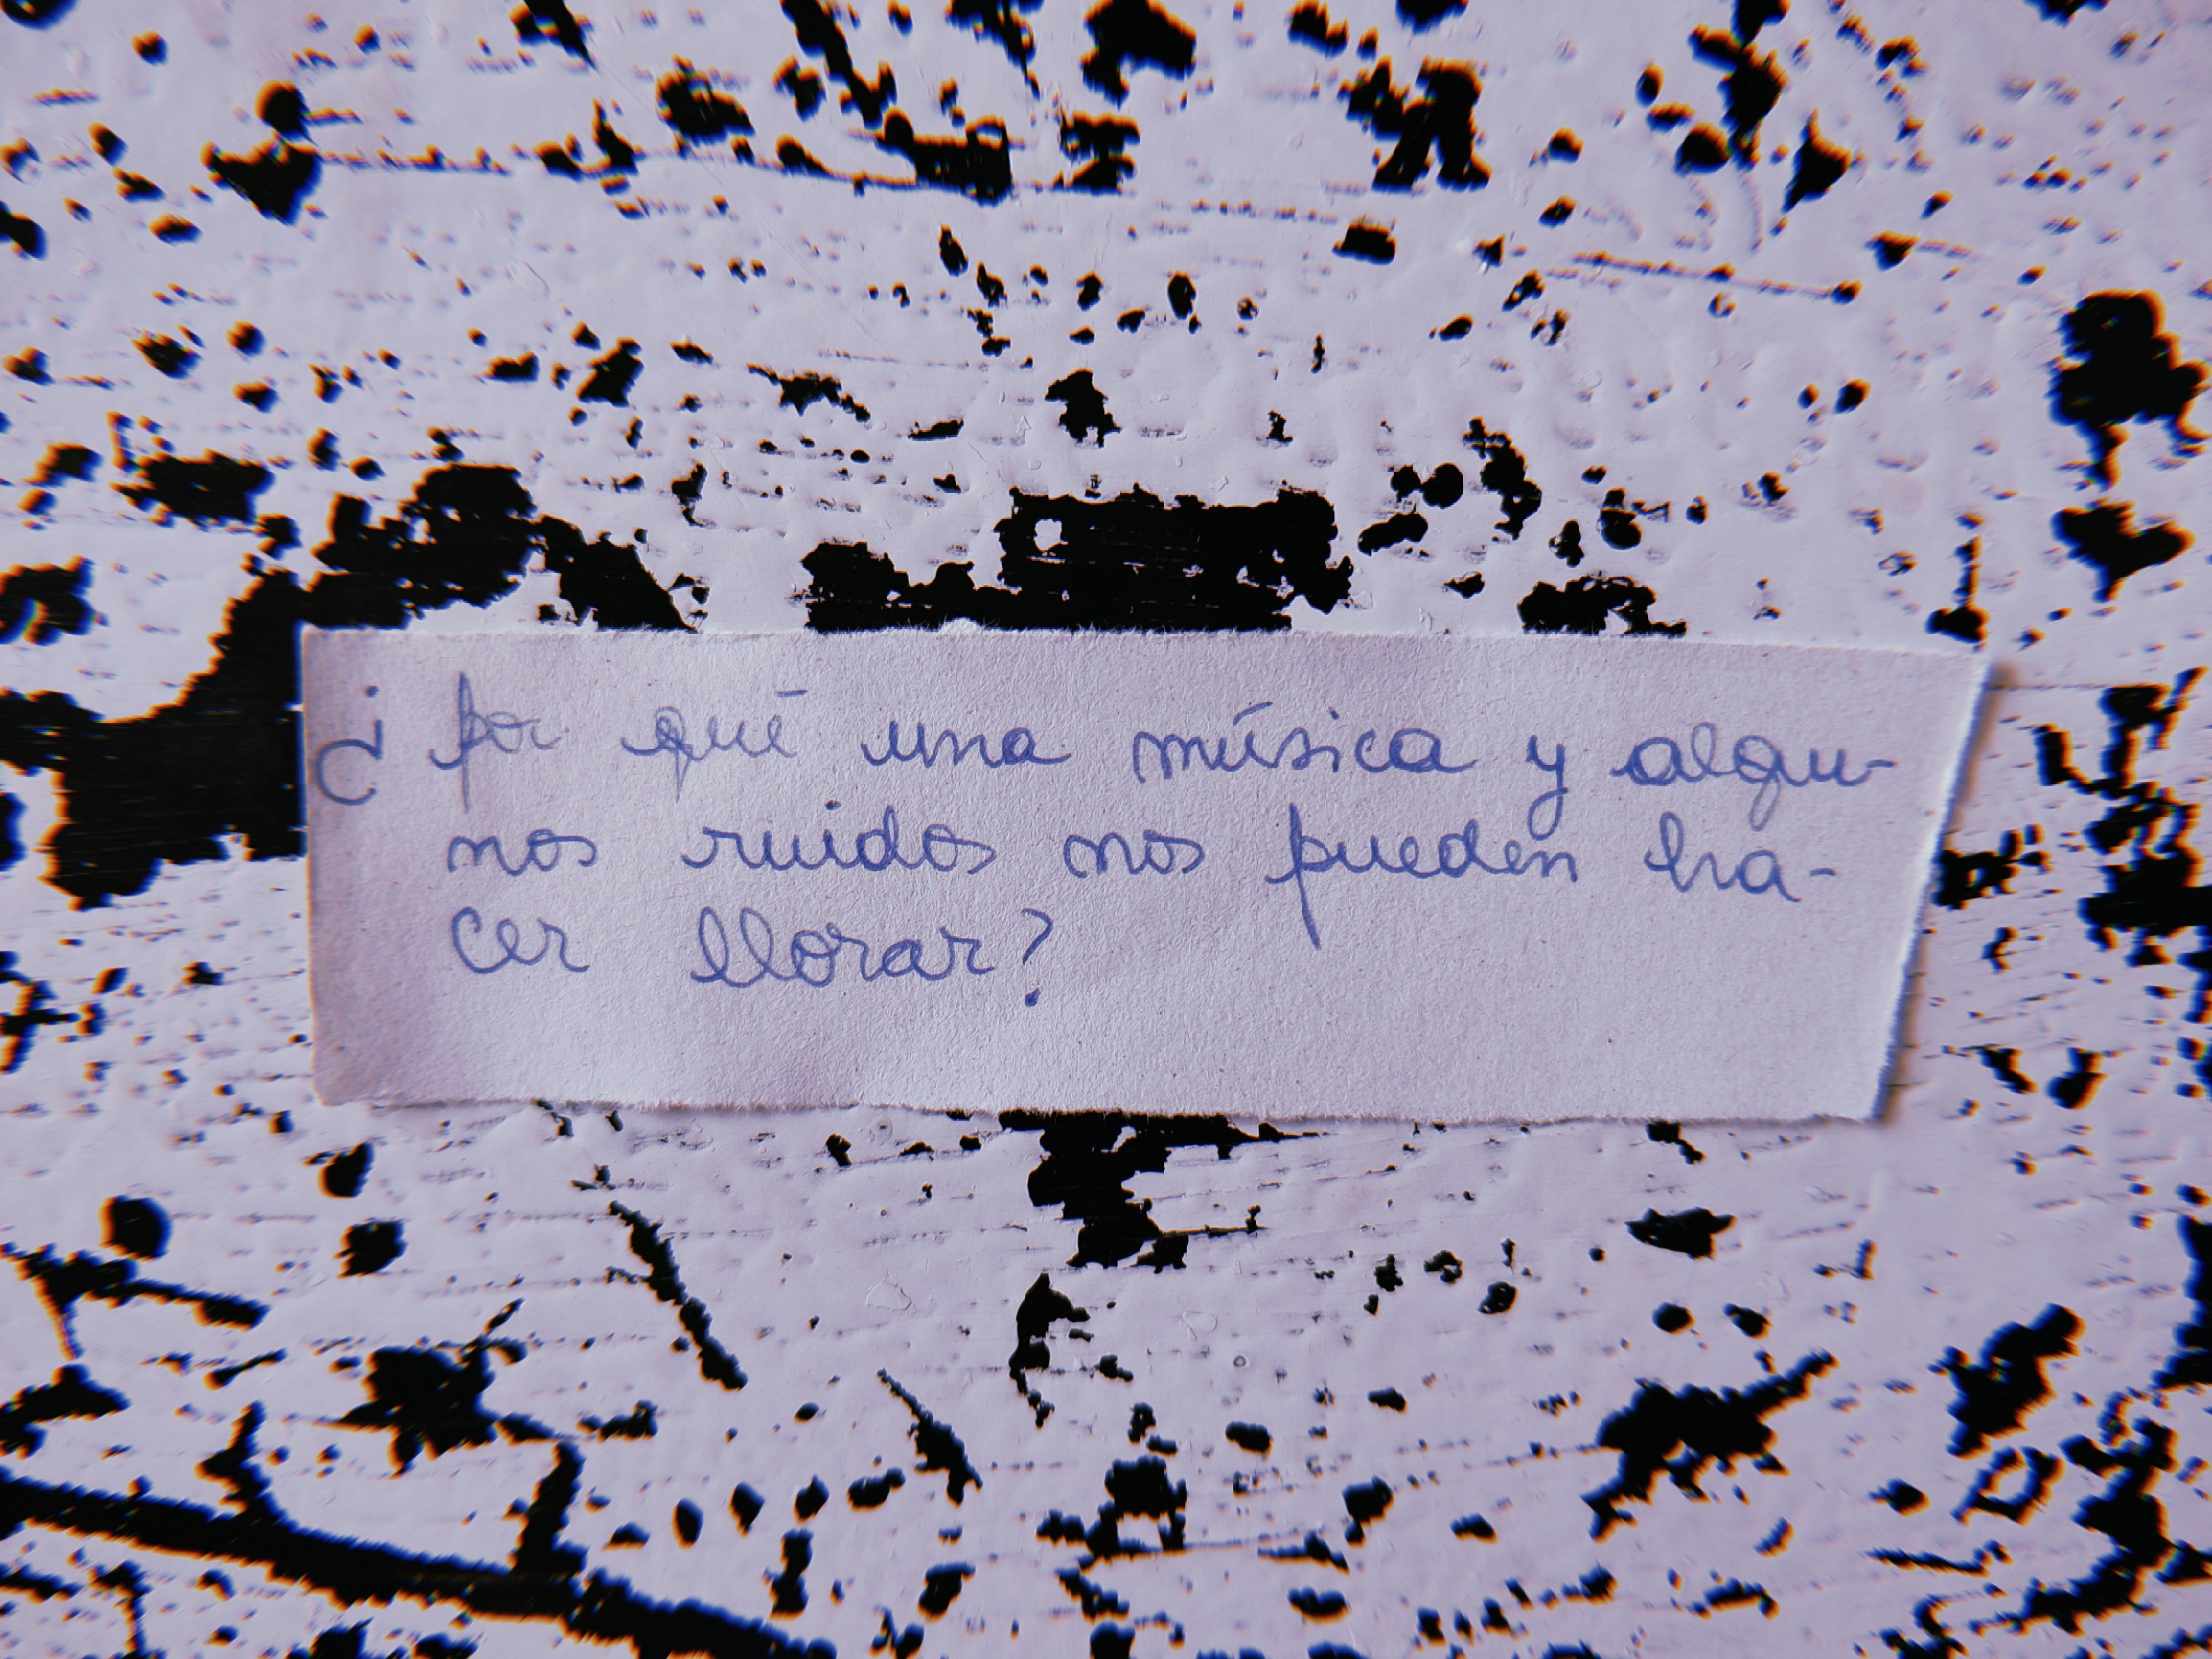 ¿por qué una música y algu-
nos ruidos nos pueden ha-
cer llorar?